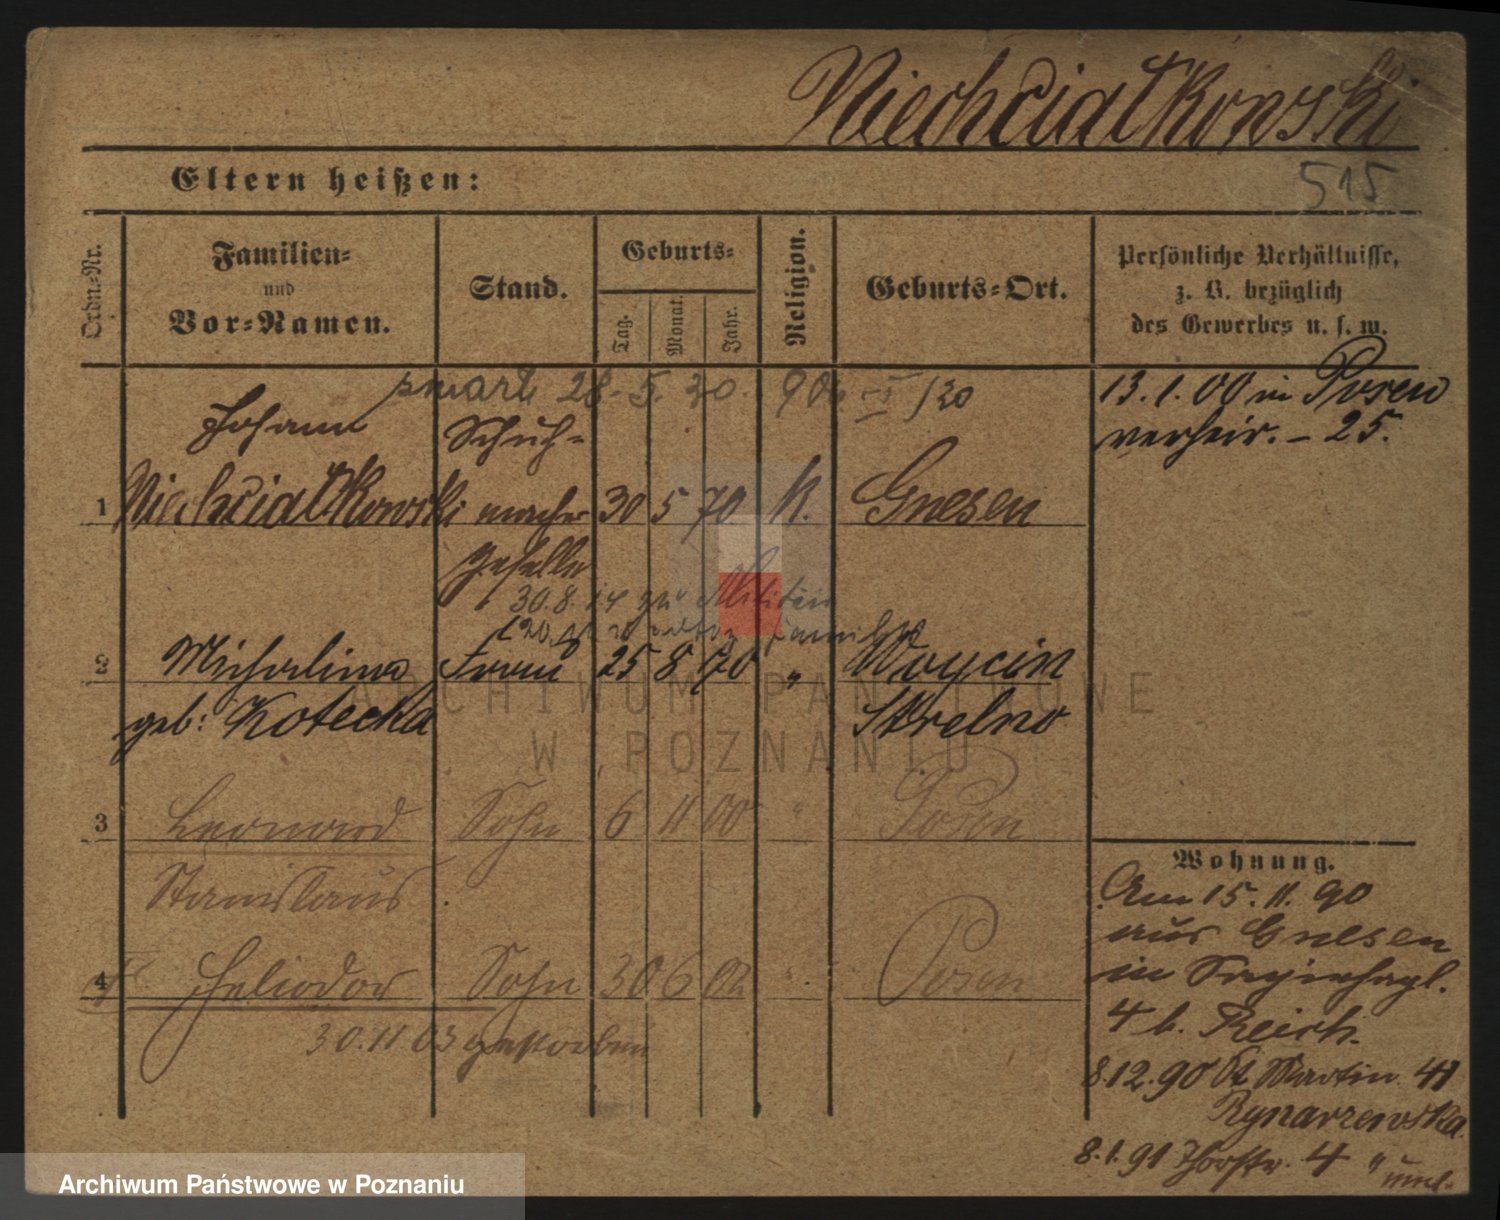 Niechciatkowski
Eltern heißen:
515
Ordn.-Nr.
Familien-
und
Vor-Namen.
Stand.
Geburts-
Tag.
Monat.
Jahr.
Religion.
Geburts-Ort.
Persönliche Verhältnisse,
z. B. bezüglich
des Gewerbes u. s. w.
zmarł 28. 5. 30.
13. 1. 00 in Posen
verheir. – 25.
Johann Schuh-
1 Niechciatkowski macher 30 5 70 K. Gnesen
Geselle
30.8. 14 zu Militär
2 Michalina Frau 25 8 70 " Woycin
geb: Kotecka Strelno
3 Leonard Sohn 6 11 00 " Posen
Stanislaus
4 Heliodor Sohn 30 6 02 " Posen
30. 11 03 gestorben
Wohnung.
Am 15. 11. 90
aus Gnesen
in
4 b. Reich.
8.12.90 St Martin 41
Rynarzewska
8.1.91 Thorstr. 4 "
ARCHIWUM PAŃSTWOWE
W POZNANIU
Archiwum Państwowe w Poznaniu